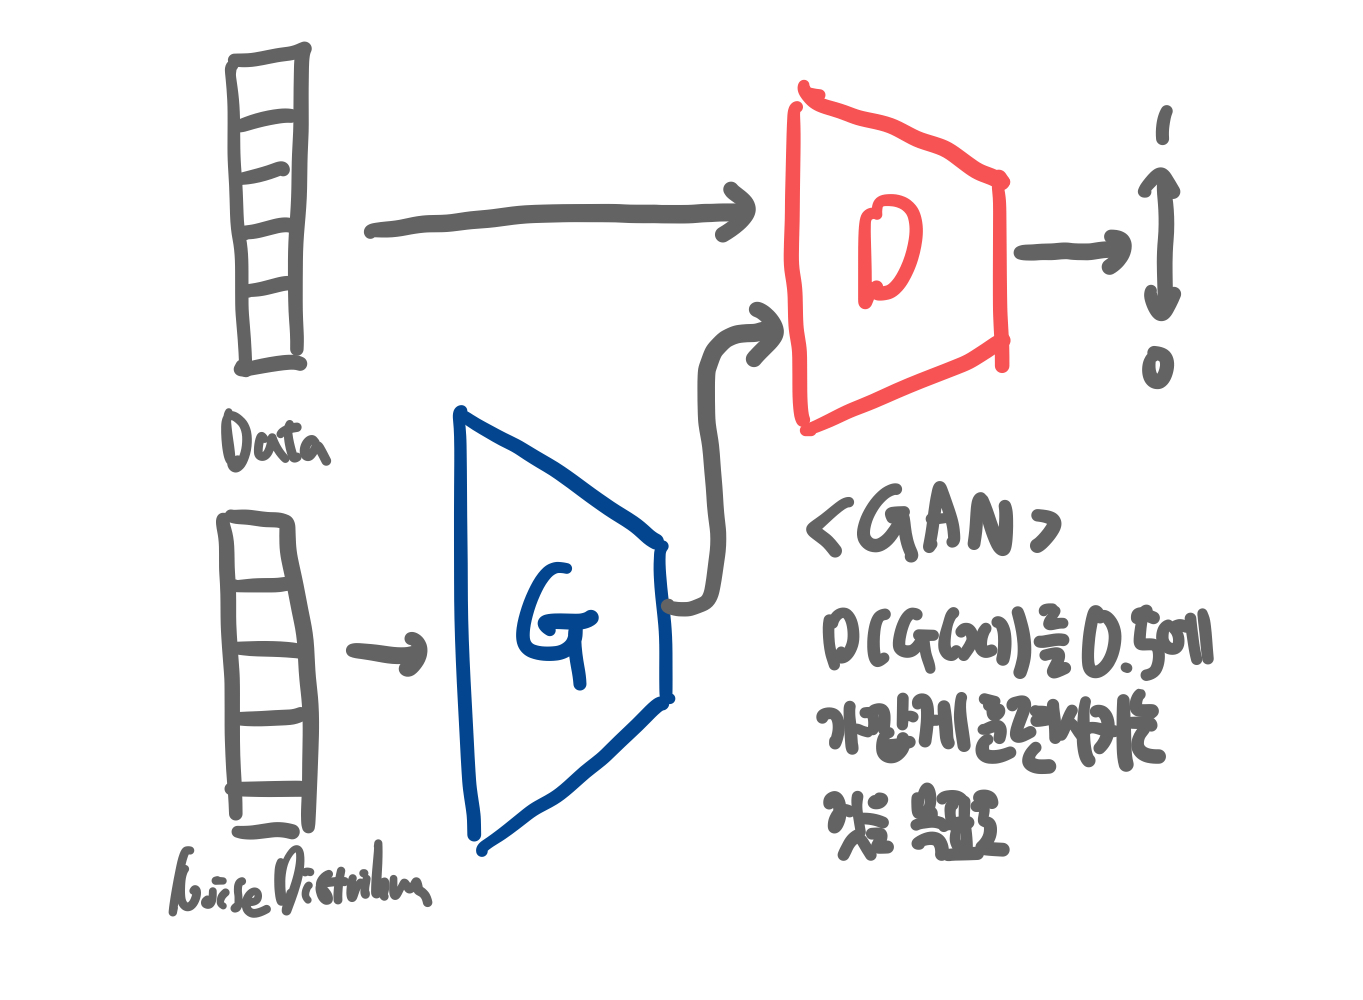 Data
Noise Distribution
G
D
1
0
<GAN>
D(G(x))를 0.5에
가깝게 훈련시키는
것을 목표로